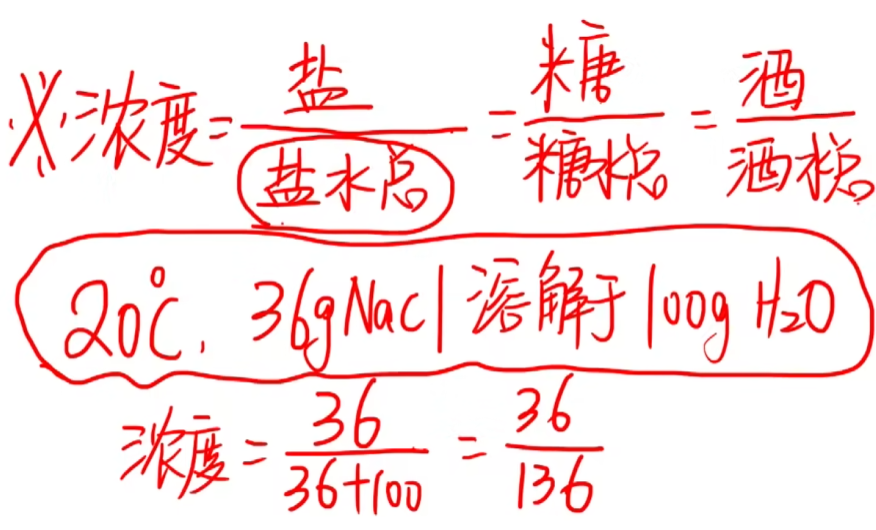 ※浓度=盐/盐水总=糖/糖水总=酒/酒水总
20℃, 36gNaCl溶解于100gH₂O
浓度=36/36+100=36/136